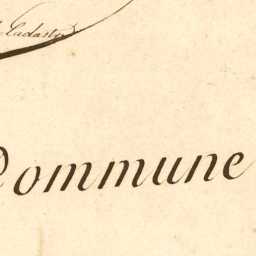 Cadastre
Commune